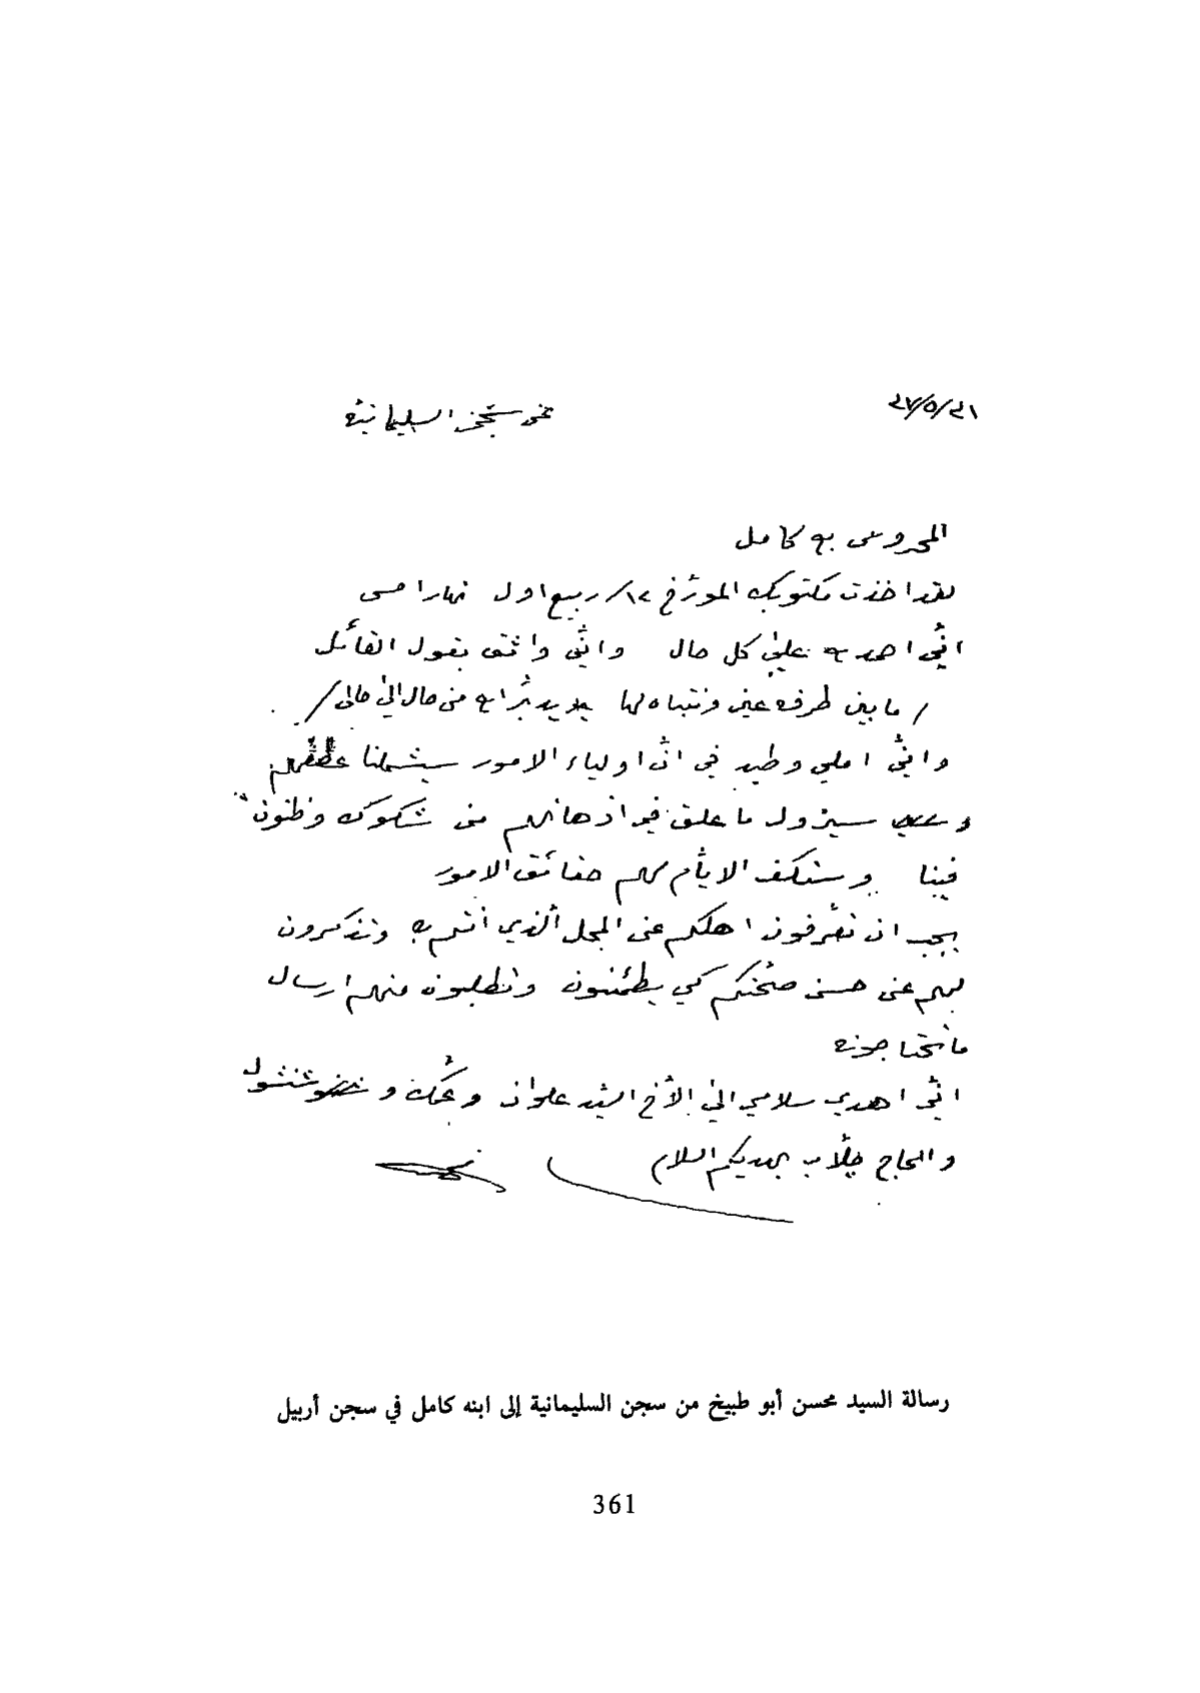 ٢٧/٥/٢١
من سجن السليمانية
المحروس به كامل
لقد اخذت مكتوبك المورّخ ١٢/ ربيع اول نهارا مس
انّي احمده على كل حال وانّي واثق بقول القائل
/ ما بين طرفة عين وانتباه لها يدبّر الله من حال الى حال /
وانّي املي وطيد في انّ اولياء الامور سيشملنا عطفهم
و سيزول ما علق في اذهانهم من شكوك وظنون
فينا وستكشف الايّام لهم حقائق الامور
يجب ان تعرّفون اهلكم عن المحل الّذي انتم به وتذكرون
لهم عن حسن صحّتكم كي يطمئنون وتطلبون منهم ارسال
ما تحتاجونه
انّي اهدي سلامي الى الأخ السّيد علوان وعمّك و شنشول
والحاج چلّاب يهديكم السلام
محسن
رسالة السيد محسن أبو طبيخ من سجن السليمانية إلى ابنه كامل في سجن أربيل
361